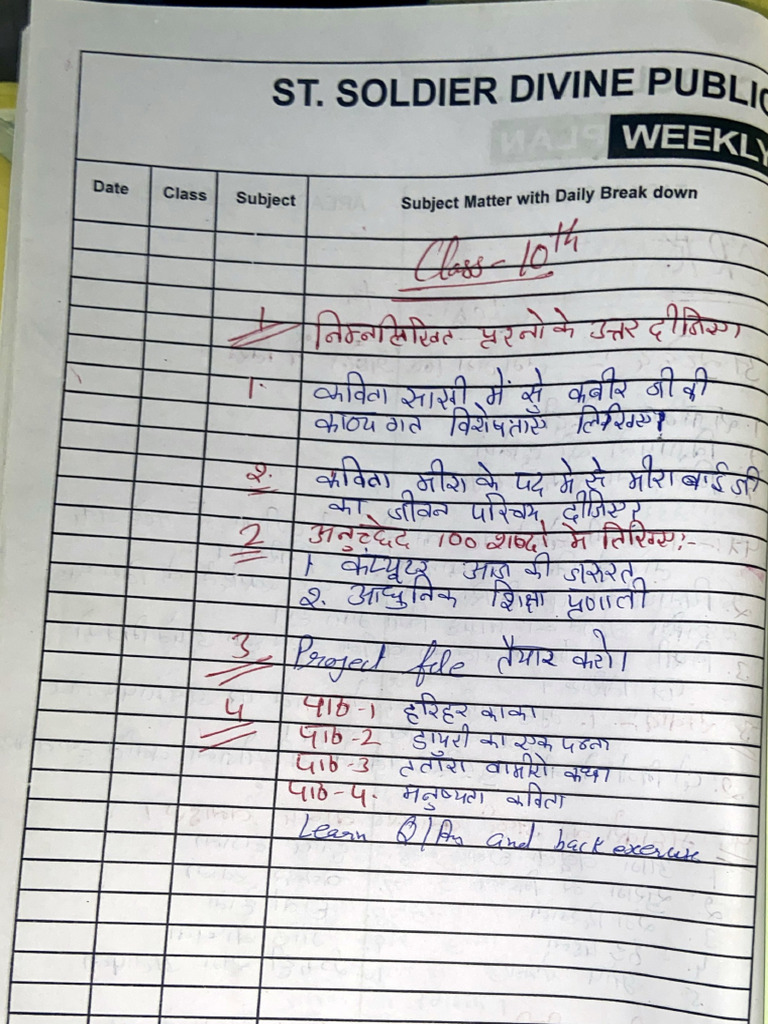 ST. SOLDIER DIVINE PUBLIC
WEEKLY
Date Class Subject Subject Matter with Daily Break down
Class - 10th
1 निम्नलिखित प्रश्नो के उत्तर दीजिए
1. कविता साखी में से कबीर जी की
काव्यगत विशेषताएँ लिखिए?
२. कविता मीरा के पद मे से मीरा बाई जी
का जीवन परिचय दीजिए?
2 अनुच्छेद 100 शब्दो मे लिखिए:-
1 कंप्यूटर आज की जरूरत
२. आधुनिक शिक्षा प्रणाली
3 Project file तैयार करो।
4 पाठ-1 हरिहर काका
पाठ-2 डायरी का एक पन्ना
पाठ-3 तताँरा वामीरो कथा
पाठ-4. मनुष्यता कविता
Learn Q/An and back exercise